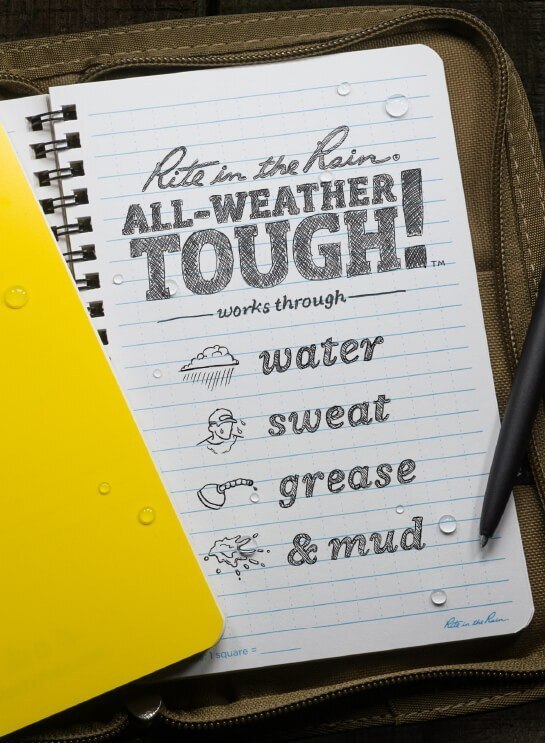 Rite in the Rain®
ALL-WEATHER
TOUGH!™
works through
water
sweat
grease
& mud
Rite in the Rain
1 square =